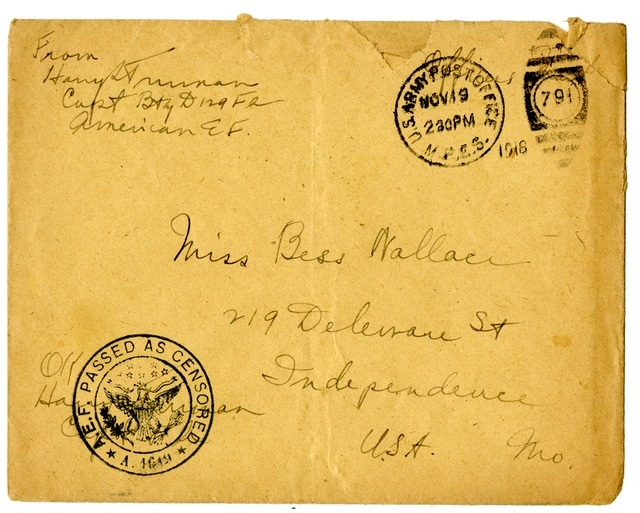 From
Harry S Truman
Capt Bty D 129 FA
American E F.
Officers
U.S. ARMY POST OFFICE
NOV 19
230PM
M.P.E.S.
1918
791
Miss Bess Wallace
219 Deleware St
Independence
U.S.A. Mo.
OK
Harry Truman
A.E.F. PASSED AS CENSORED
A. 1649